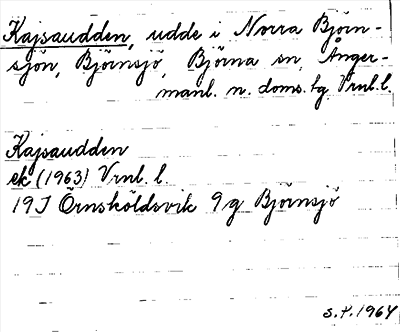 Kajsaudden, udde i Norra Björn-
sjön, Björnsjö, Björna sn, Ånger-
manl. n. doms. tg Vrnl. l.
Kajsaudden
ek (1963) Vrnl. l.
19J Örnsköldsvik 9g Björnsjö
1964